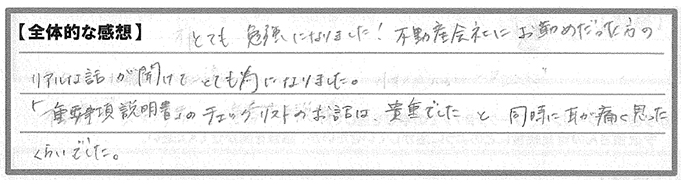 【全体的な感想】 とても 勉強になりました! 不動産会社に お勤めだった方の
リアルな話が聞けて とても為になりました。
「重要事項説明書」のチェックリストのお話は、貴重でした と 同時に 耳が痛く思った
くらいでした。